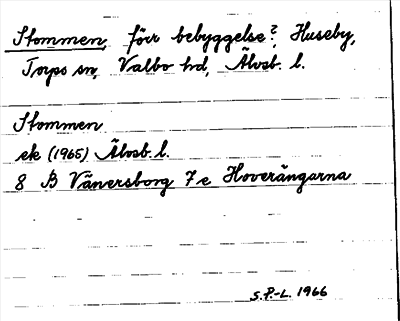 Stommen, förr bebyggelse?, Huseby,
Torps sn, Valbo hd, Älvsb. l.
Stommen
ek (1965) Älvsb. l.
8 B Vänersborg 7 e Hoverängarna
S.P.-L. 1966